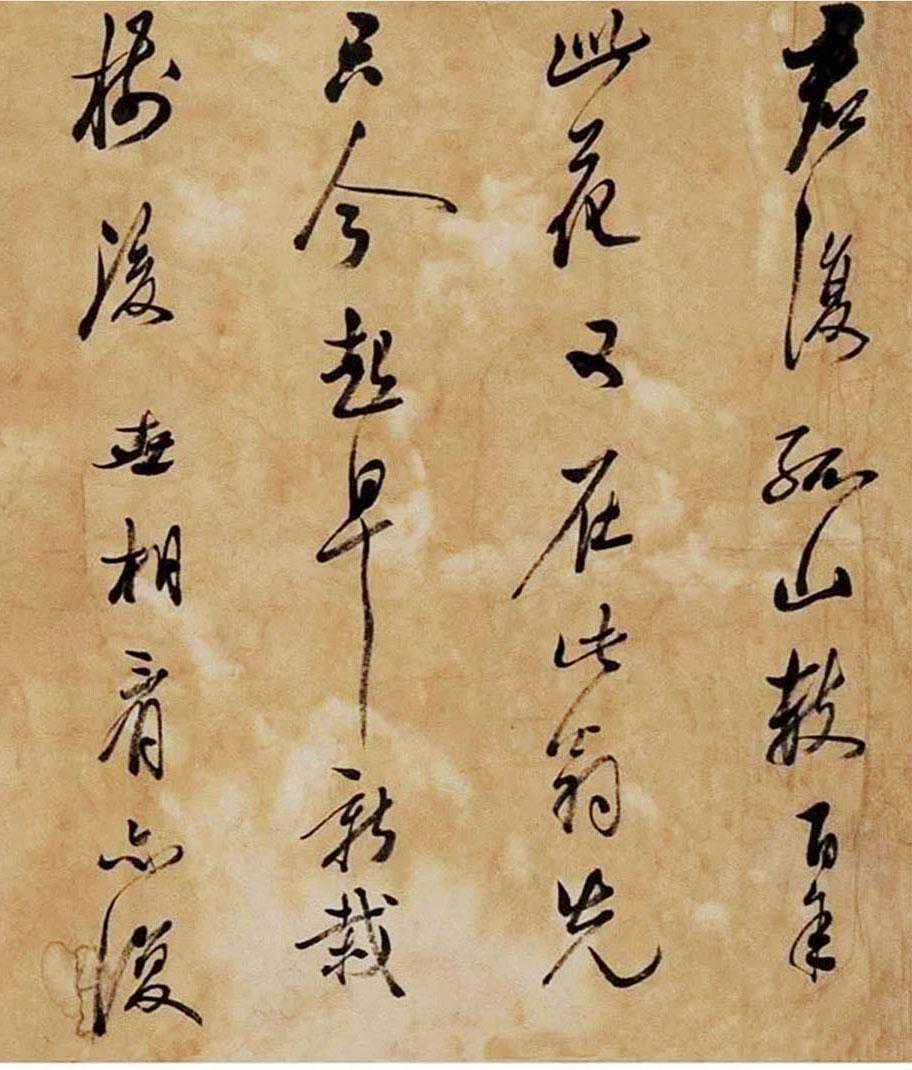 君復孤山數百年
此花又在此翁先
只今起早新栽
樹後世相看亦復